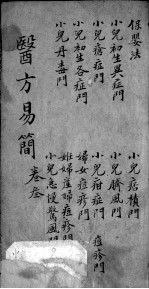 保嬰法
小兒初生異症門
小兒瘡症門
小兒初生各症門
小兒丹毒門
小兒痞積門
小兒臍風門
小兒疳症門
痘疹門
婦女痘疹門
妊婦產婦痘疹門
小兒急慢驚風門
醫方易簡
卷叁